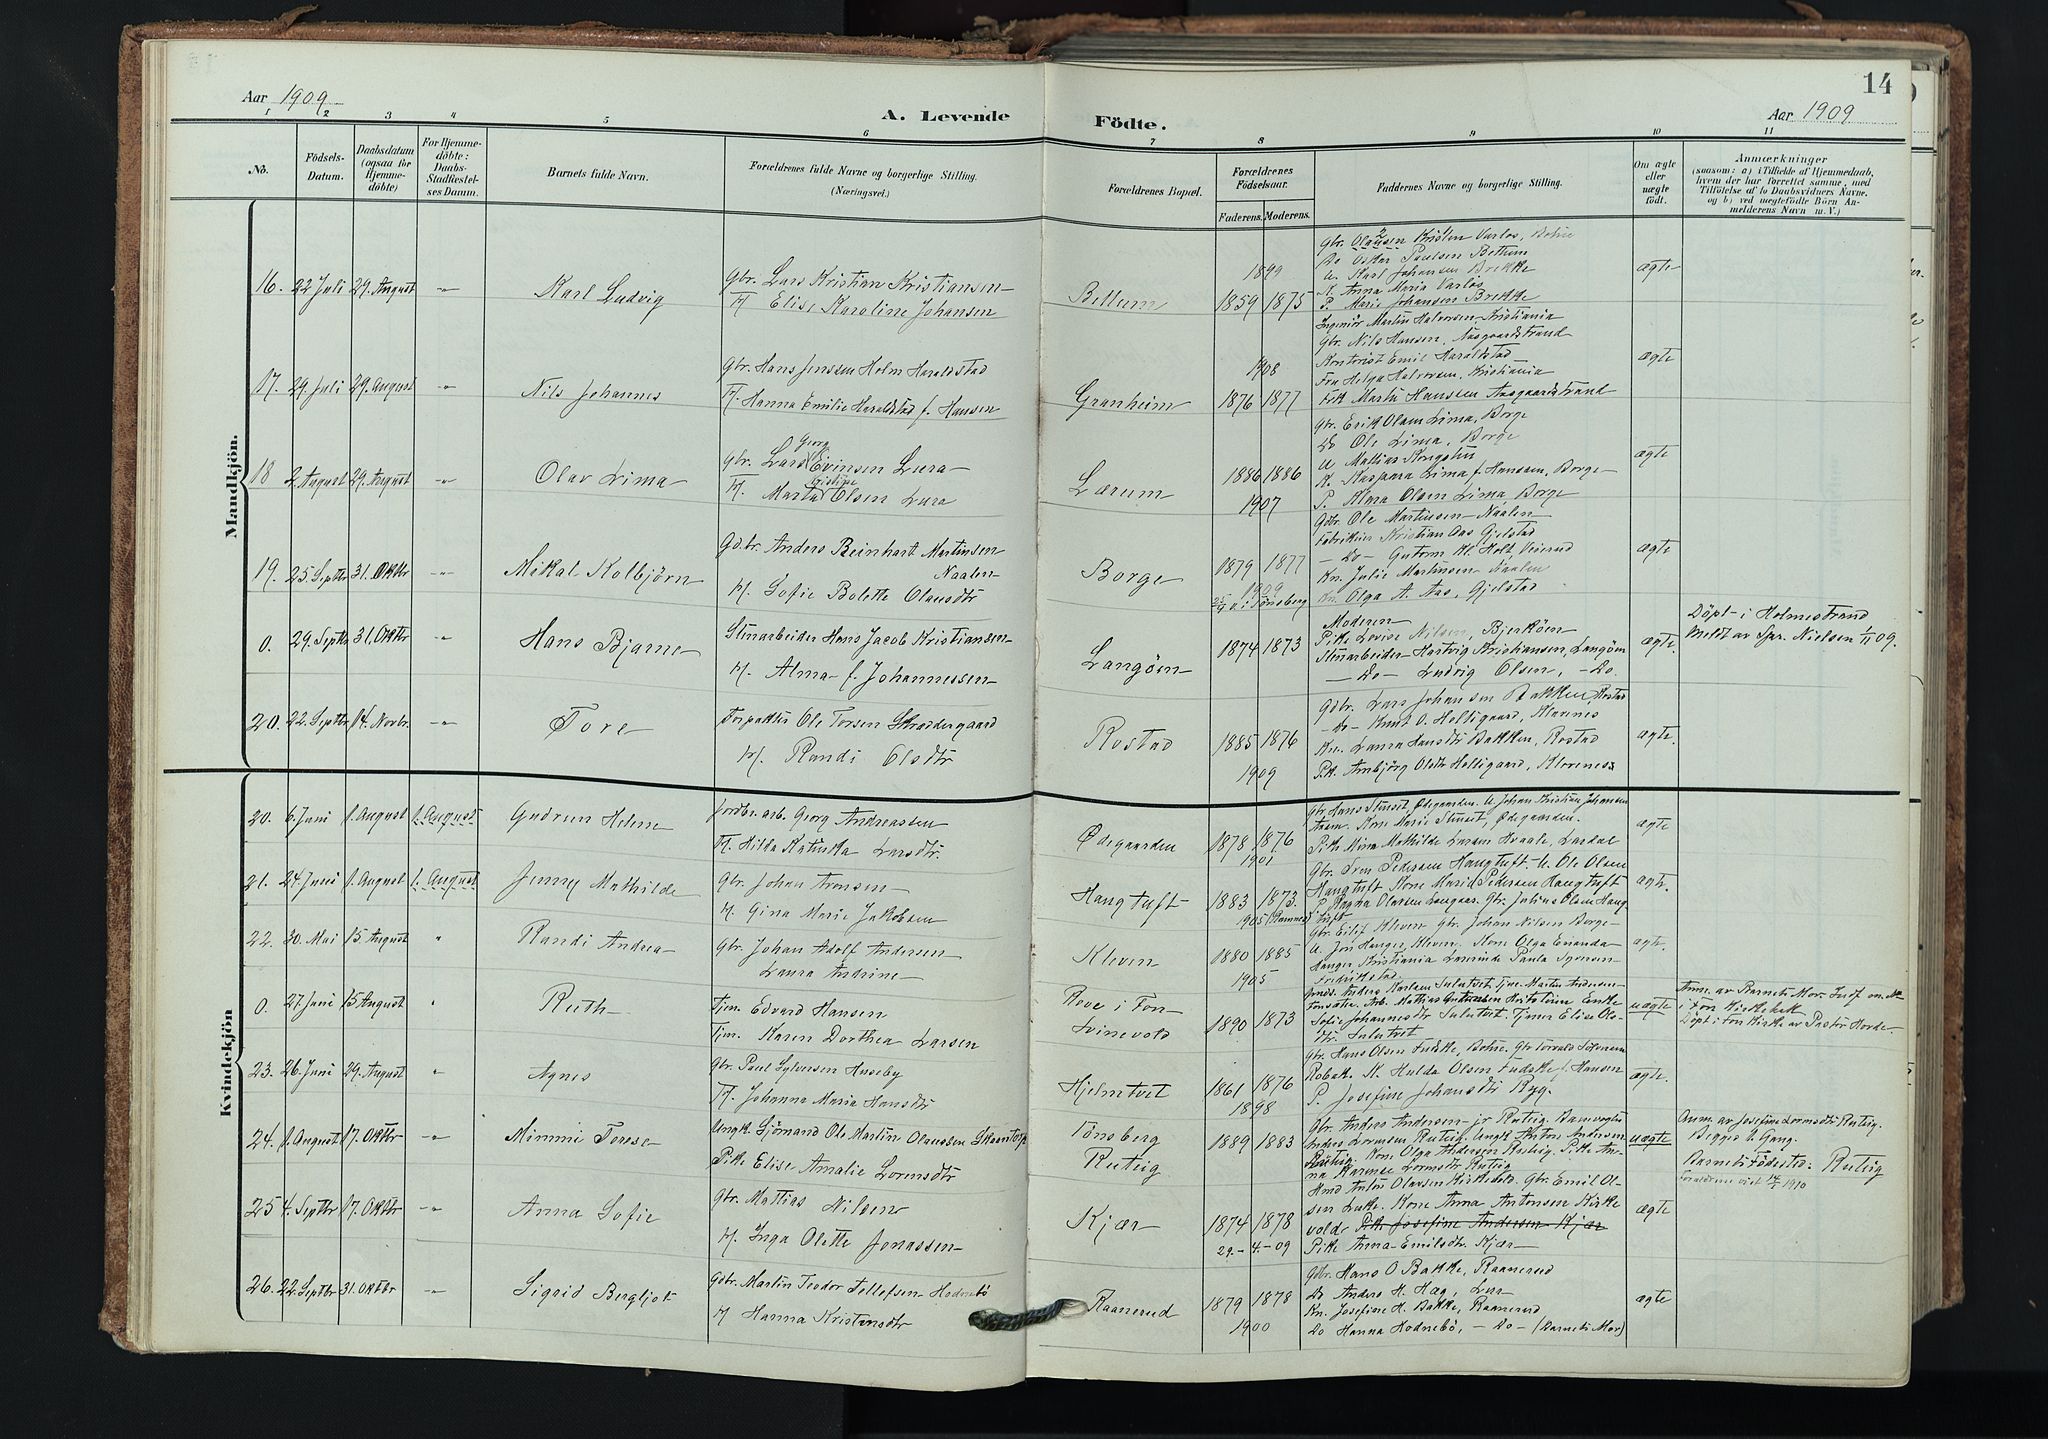 14
Aar 1909
A. Levende
Födte.
Aar 1909
1 2 3 4 5 6 7 8 9 10 11
No.
Födsels-
Datum.
Daabsdatum
(ogsaa for
Hjemme-
döbte)
For Hjemme-
döbte:
Daabs-
Stadfæstel-
ses Datum.
Barnets fulde Navn.
Forældrenes fulde Navne og borgerlige Stilling.
(Næringsvei.)
Forældrenes Bopæl.
Forældrenes
Födselsaar.
Faderens. Moderens.
Faddernes Navne og borgerlige Stilling.
Om ægte
eller
uægte
födt.
Anmærkninger
(saasom: a) i Tilfælde af Hjemmedaab,
hvem der har forrettet samme, med
Tilföielse af to Daabsvidners Navne.
og b) ved uægtefödte Börn An-
melderens Navn m. V.)
Mandkjön.
16. 22 Juli 29. August -"- Karl Ludvig
Gbr. Lars Kristian Kristiansen
H. Elise Karoline Johansen
Bettum
1899
1859 1875
Gbr. Olausen Kristen Varlos, Bohre
Do Oskar Paulsen Bettum
U. Karl Johansen Brekke
K. Anna Maria Varlos
P. Marie Johansen Brekke
ægte
17. 29. Juli 29. August -"- Nils Johannes
Gbr. Hans Jenssen Holm Haraldstad
H. Hanna Emilie Haraldstad f. Hansen
Granheim
1908
1876 1877
Ingeniör Martin Halvorsen Kristiania
Gbr. Nils Hansen, Aasgaardstrand
Kontorist Emil Haraldstad
Fru Helga Halvorsen, Kristiania
Frk Martha Hanssen Aasgaardstrand
ægte
18 2. August 29. August -"- Olav Lima
Gbr. Lars Georg Evinsen Lura
H. Marta Kristine Olsen Lura
Lærum
1886 1886
1907
Gbr. Erik Olsen Lima, Borge
Do Ole Lima, Borge
U Mattias Kongshu
K. Kaspara Lima f. Hanssen, Borge
P. Alma Olsen Lima Borge
ægte
19. 25. Septbr 31. Oktbr -"- Mikal Kolbjörn
Gd.br. Anders Reinhart Martinsen
Naalen
H. Sofie Bolette Olausdtr
Borge
1879 1877
1909
i Tönsberg
Gdbr. Ole Martinsen Naalen
Fabrikeier Kristian Aas Gjelstad
Do Guttorm Holt Veierud
Kn. Julie Martinsen Naalen
Kn. Olga A. Aas, Gjelstad
ægte
0. 29. Septbr 31. Oktbr -"- Hans Bjarne
Stenarbeider Hans Jacob Kristiansen
H. Alma f. Johannessen
Langöen
1874 1873
Moderen
Pike Lovise Nilsen, Bjerköen
Stenarbeider Hartvig Kristiansen, Langöen
Do Ludvig Olsen, Do.
ægte.
Döpt i Holmestrand
Meldt av Spr. Nielsen 1/11 09.
20. 22. Septbr 14. Novbr. -"- Tore
Forpakter Ole Torsen Skradergaard
H. Randi Olsdtr
Rostad
1885 1876
1909
Gdbr. Lars Johansen Bakken, Rostad
Do Knut O. Helligaard, Klavenes
Kn. Laura Hansdtr Bakken, Rostad
Pik. Ambjörg Olsdtr Helligaard, Klavenes
ægte.
Kvindekjön
20. 6. Juni 1. August 1. August Gudrun Helene
Jordbr. arb. Georg Andreassen
H. Hilda Katinka Larsdtr.
Ödegaarden
1878 1876
1901
Gbr. Hans Stenset, Ödegaarden. U. Johan Kristian Johansen
Kone Marie Stenset, Ödegaarden.
Pike Mina Mathilde Larsen Hvaale, Lardal
ægte
21. 24. Juni 1. August 1. August Jenny Mathilde
Gbr. Johan Aronsen
H. Gina Marie Jakobsen
Haugtuft
1883 1873.
1905 (Ramnes)
Gbr. Iver Pedersen Haugtuft. U. Ole Olsen
Haugtuft Kone Marie Pedersen Haugtuft
P Ragna Olavsen Gbr. Julius Olsen Haug-
tuft
ægte.
22. 30. Mai 15. August " Randi Andrea
Gbr. Johan Adolf Andersen
Laura Andrine
Kleven
1880 1885
1905
Gbr. Eilef Kleven Gbr. Johan Nilsen Borge
U. Jon Hanger, Kleven. Kone Olga Amanda
Hanger Kristiania Paula Syversen
Fredrikstad.
ægte.
0. 27. Juni 15 August " Ruth
Tjm. Edvard Hansen
Tjm. Karen Dorthea Larsen
Rove i Fon
Svinevold
1890 1873
Anders Karlsen Sulutvet Tjm. Martin Andersen
Arb. Mathias Guttormsen
Sofie Johannesdtr Sulutvet. Tjener Elise Ols-
dtr. Sulutvet
uægte
Anm. av Barnets Mor.
i Fon Kirkebok
Döpt i Fon Kirke av Pastor Horde
23. 26. Juni 29. August " Agnes
Gbr. Paul Sylvesen Huseby
H. Johanna Maria Hansdtr
Hjelmtvet
1861 1876
1898
Gbr. Hans Olsen Fuske, Bohre. Gbr Torvald Salvesen
Robak. K. Hulda Olsen Fuske f. Hansen
P. Josefine Johansdtr Ryg.
ægte.
24. 1. August 17. Oktbr -"- Mimmi Terese
Ungk. Sjömand Ole Martin Olaussen Skantorp
Pike Elise Amalie Lorensdtr
Tönsberg
Ruteig
1889 1883
Gbr. Anders Andersen jr Ruteig.
Anders Lorensen Ruteig. Ungk Anton Andersen
Ruteig. Kone Olga Andersen Ruteig. Pike An-
na Karense Lorensdtr Ruteig
uægte
Anm. av Josefine Lorensdtr Ruteig.
Begges 1. Gang.
Barnets Födested: Ruteig
Forældrene viet 1910
25 4. Septbr 17. Oktbr -"- Anna Sofie
Gbr. Mattias Nilsen
H. Inga Olette Jonassen
Kjær
1874 1878
29. - 4. - 09
Gbr. Emil Ol-
sen Kone Anna Antonsen Kirke
vold Pike Josefine Andersen Kjær
Pike Anna Emilsdtr. Kjær
ægte
26. 22. Septbr 31. Oktbr -"- Sigrid Bergljot
Gdbr. Martin Teodor Tellefsen Hodnebö
H Hanna Kristensdtr
Raanerud
1879 1878
1900
Gdbr. Hans O Bakke, Raanerud
Do Anders H. Hæg, Lur
Kn. Josefine H. Bakke, Raanerud
Do Hanna Hodnebö, Do (Barnets Mor)
ægte